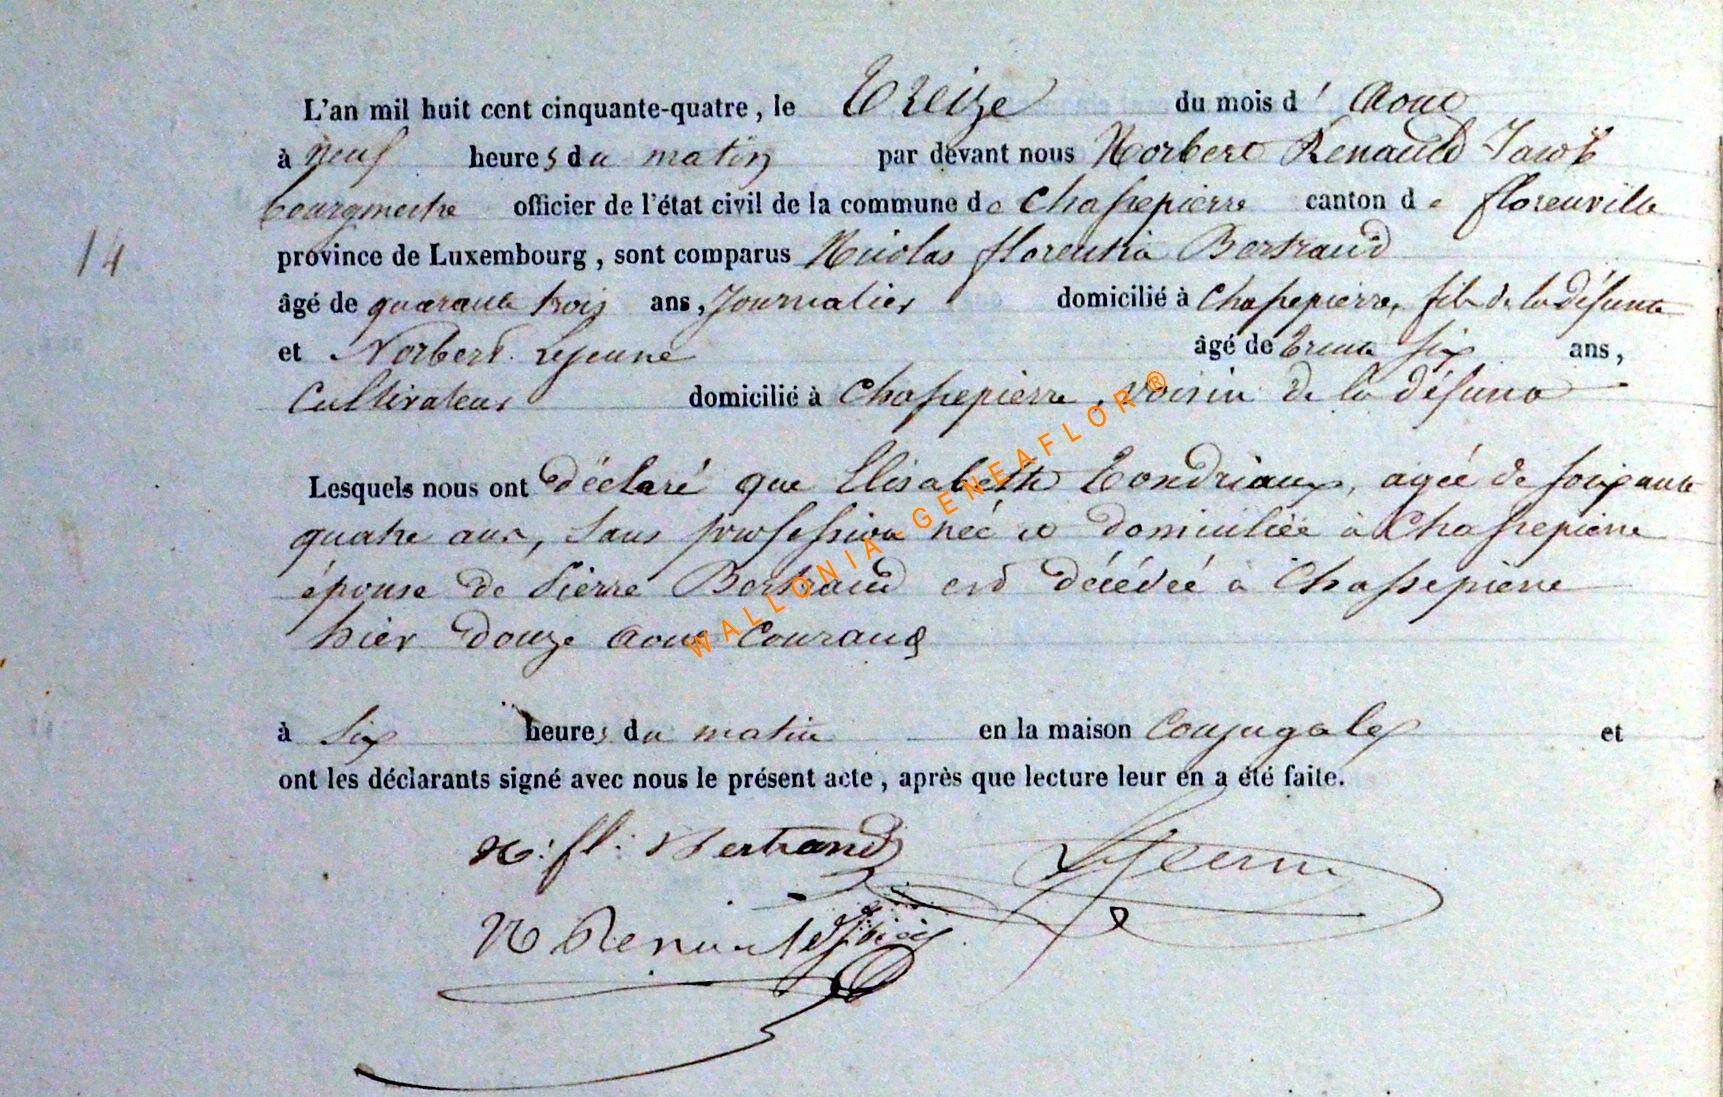 L'an mil huit cent cinquante-quatre, le treize du mois d' aout
14
à neuf heures du matin par devant nous Norbert Renauld Jacob
bourgmestre officier de l'état civil de la commune de Chassepierre canton de florenville
province de Luxembourg, sont comparus Nicolas florentin Bertrand
âgé de quarante trois ans, Journalier domicilié à Chassepierre, fils de la défunte
et Norbert Lejeune âgé de trente six ans,
Cultivateur domicilié à Chassepierre, voisin de la défunte
Lesquels nous ont déclaré que Elisabeth Tondriaux, agée de soixante
quatre ans, sans profession née et domiciliée à Chassepierre
épouse de Pierre Bertrand est décédée à Chassepierre
hier douze aout Courant
à six heures du matin en la maison Conjugale et
ont les déclarants signé avec nous le présent acte, après que lecture leur en a été faite.
N: fl: Bertrand Lejeune
N Renauld
WALLONIA-GENEAFLOR ®